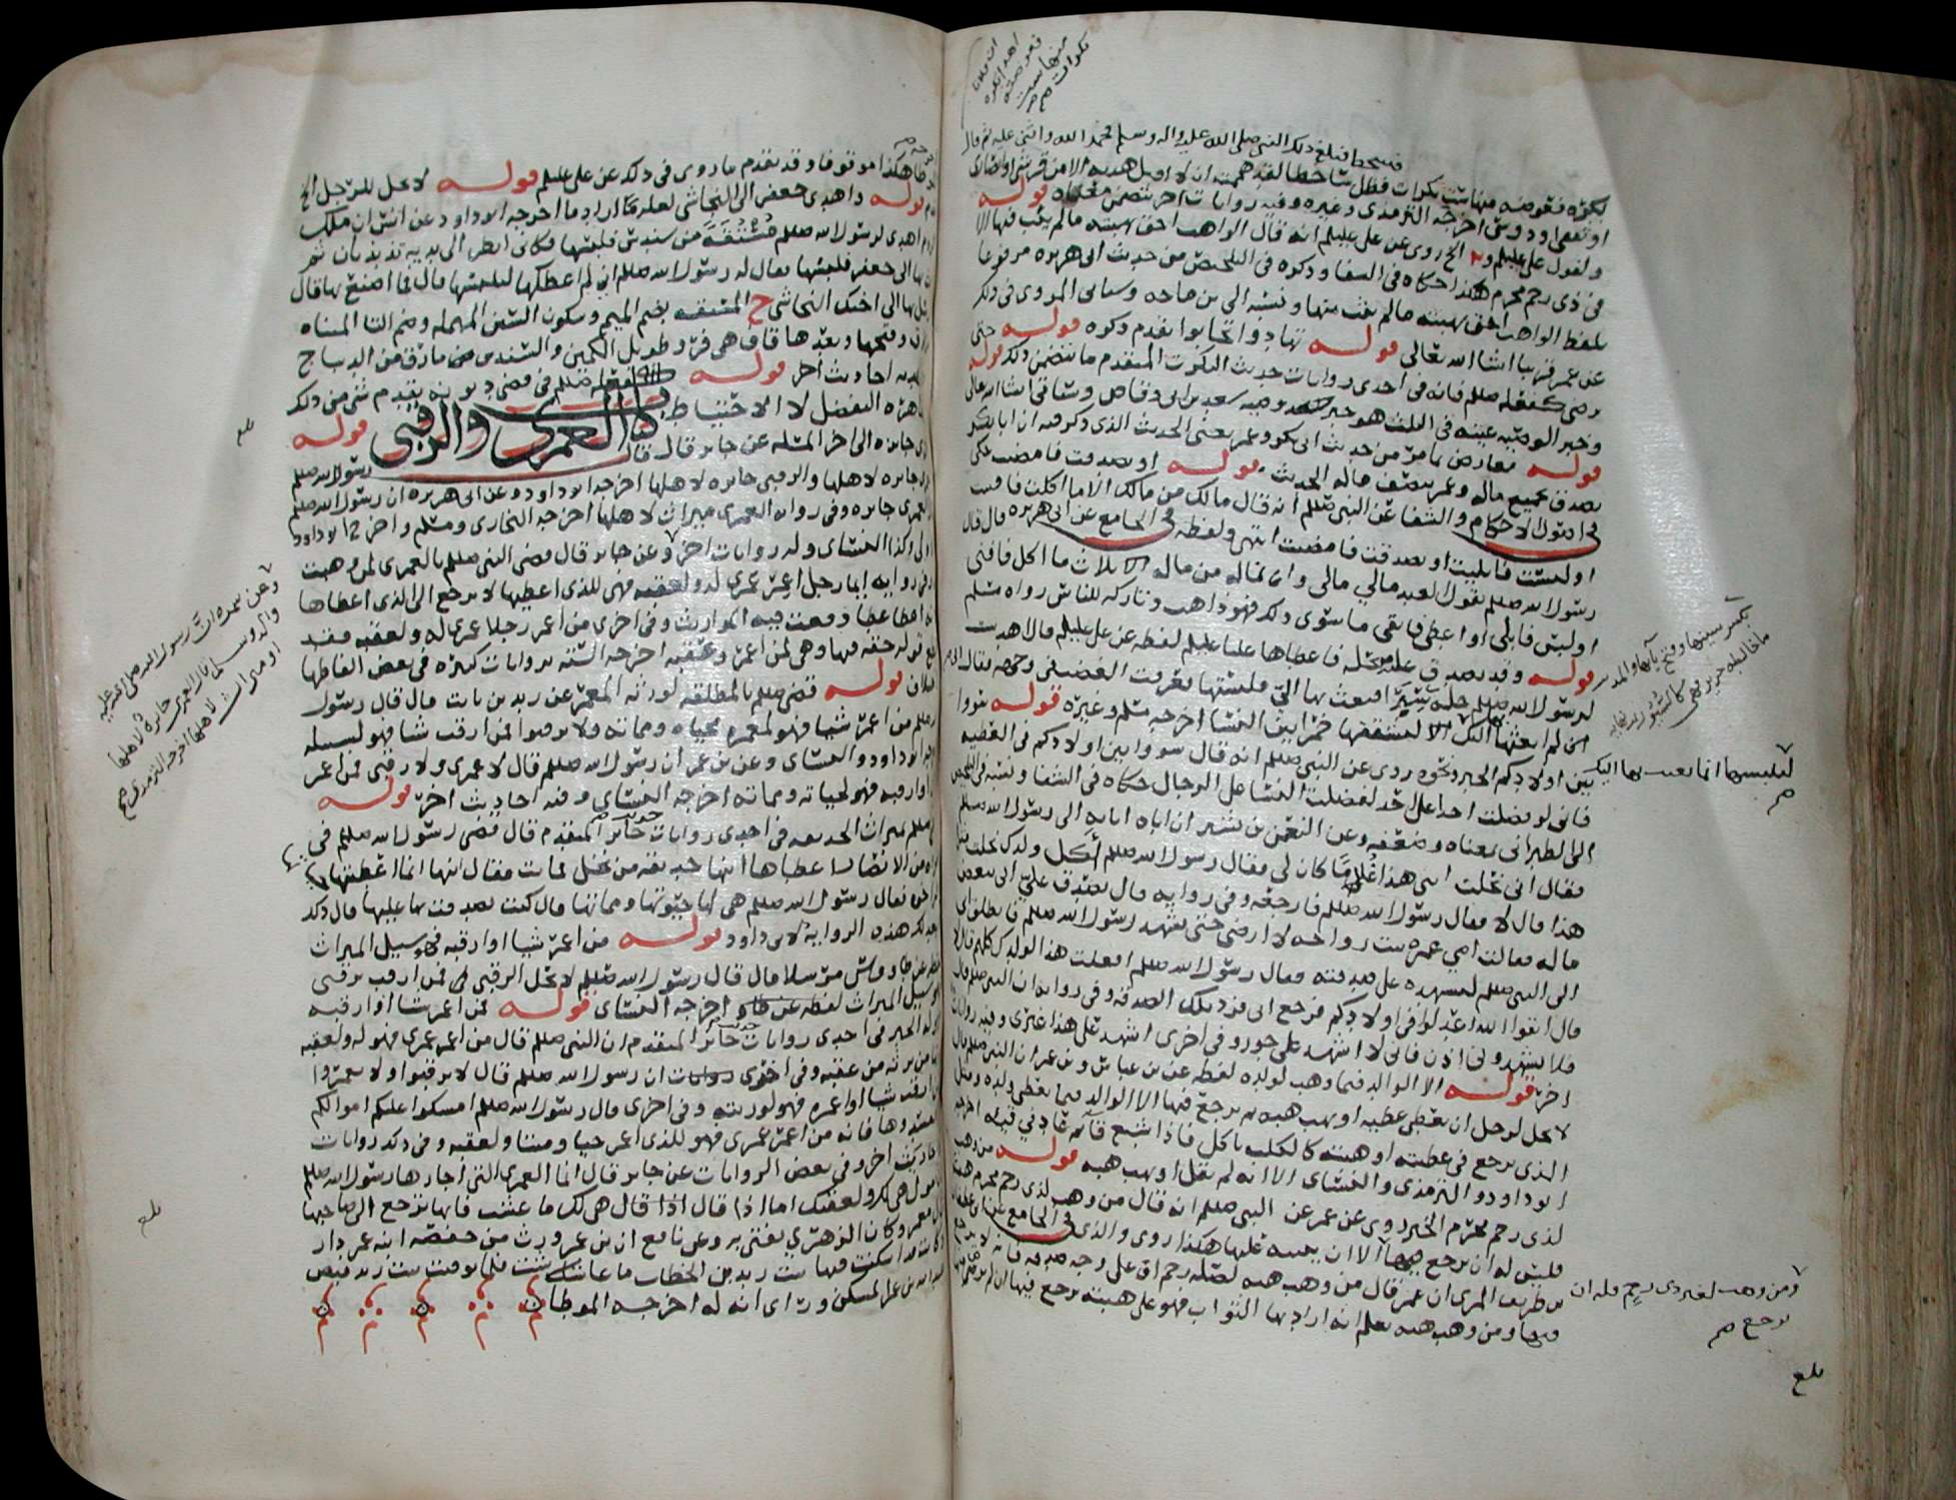 فسخط فبلغ ذلك النبي صلى الله عليه واله وسلم فحمد الله واثنى عليه ثم قال
بكره فعوضته منها ست بكرات فظل ساخطا لقد هممت ان لا اقبل هدية الا من قرشي او انصاري
او ثقفي او دوسي اخرجه الترمذي وغيره وفيه روايات اخر تتضمن معناه قوله
ولقول علي عليلم الخ روي عن علي عليلم انه قال الواهب احق بهبته ما لم يثب فيها الا
في ذي رحم محرم هكذا حكاه في الشفا وذكره في التلخيص من حديث ابي هريره مرفوعا
بلفظ الواهب احق بهبته ما لم يثب منها ونسبه الى بن ماجه وسياتي المروي في ذلك
عن عمر قريبا انشا الله تعالى قوله تهادوا تحابوا تقدم ذكره قوله حتى
رضي كفعله صللم فانه في احدى روايات حديث البكرات المتقدم ما يتضمن ذلك قوله
وخبر الوصيه عينه في الثلث هو خبر وصية سعد بن ابي وقاص وسياتي انشا الله تعالى
قوله معارض بما مر من حديث ابي بكر وعمر يعني الحديث الذي ذكر فيه ان ابا بكر
تصدق بجميع ماله وعمر بنصف ماله الحديث قوله او تصدقت فامضيت حكى
في اصول الاحكام والشفا عن النبي صللم انه قال مالك من مالك الا ما اكلت فافنيت
او لبست فابليت او تصدقت فامضيت انتهى ولفظه في الجامع عن ابي هريره قال قال
رسول الله صللم يقول العبد مالي مالي وان ماله من ماله ثلاث ما اكل فافنى
او لبس فابلى او اعطى فابقى ما سوى ذلك فهو ذاهب وتاركه للناس رواه مسلم
قوله وقد تصدق علي بحله فاعطاها عليا عليلم لفظه عن علي عليلم قال اهديت
لرسول الله صللم حلة سيرا فبعث بها الي فلبستها فعرفت الغضب في وجهه فقال
اني لم ابعثها اليك الا لتشققها خمرا بين النسا اخرجه مسلم وغيره قوله سووا
بين اولادكم الخبر ونحوه روي عن النبي صللم انه قال سووا بين اولادكم في العطيه
فاني لو فضلت احدا على احد لفضلت النسا على الرجال حكاه في الشفا ونسبه في التلخيص
الى الطبراني بمعناه وضعفه وعن النعمن بن بشير ان اباه اتى به الى رسول الله صللم
فقال اني نحلت ابني هذا غلاما كان لي فقال رسول الله صللم أكل ولدك نحلت مثل
هذا قال لا فقال رسول الله صللم فارجعه وفي روايه قال تصدق علي ابي ببعض
ماله فقالت امي عمره بنت رواحه لا ارضى حتى تشهد رسول الله صللم فانطلق ابي
الى النبي صللم ليشهده على صدقته فقال رسول الله صللم افعلت هذا بولدك كلهم قال لا
قال اتقوا الله اعدلوا في اولادكم فرجع ابي فرد تلك الصدقه وفي روايه ان النبي صللم قال
فلا تشهدوني اذن فاني لا اشهد على جور وفي اخرى اشهد على هذا غيري وفيه روايات
اخر قوله الا الوالد فيما وهب لولده لفظه عن بن عباس وبن عمر ان النبي صللم قال
لا يحل لرجل ان يعطي عطيه او يهب هبه ثم يرجع فيها الا الوالد فيما يعطي ولده ومثل
الذي يرجع في عطيته او هبته كالكلب ياكل فاذا شبع قاء ثم عاد في قيئه اخرجه
ابو داود والترمذي والنسائي الا انه لم يقل او يهب هبه قوله من وهب
لذي رحم محرم الخبر روي عن عمر عن النبي صللم انه قال من وهب لذي رحم محرم هبة
فليس له ان يرجع فيها الا ان يثيبه عليها هكذا روي والذي في الجامع
بن طريف المري ان عمر قال من وهب هبه لصلة رحم او على وجه صدقه فانه لا يرجع
فيها ومن وهب هبه يعلم انه اراد بها الثواب فهو على هبته يرجع فيها ان لم يرض منها
ان فلانا
اهدى بكره
فعوضته
منها ست
بكرات صح
بكسر سينها وفتح يائها والمد
ما خالطه حرير وهي كالسيور
لتلبسها انما بعثت بها اليك
صح
ومن وهب لغير ذي رحم فله ان
يرجع صح
بلغ
هكذا موقوفا وقد تقدم ما روي في ذلك عن علي عليلم قوله لا يحل للرجل الخ
قوله واهدى جعفر الى النجاشي لعله اراد ما اخرجه ابو داود عن انس ان ملك
الروم اهدى لرسول الله صللم مستقة من سندس فلبسها فكاني انظر الى يديه تذبذبان ثم
بعث بها الى جعفر فلبسها فقال له رسول الله صللم اني لم اعطكها لتلبسها قال فما اصنع بها قال
ارسل بها الى اخيك النجاشي ح المستقه بضم الميم وسكون السين المهمله وضم التا المثناه
فوق وفتحها وبعدها قاف هي فرو طويل الكمين والسندس مارق من الديباج
احاديث اخر قوله لفعله صللم في قضى ديونه تقدم شي من ذلك
التفضل لا الاحتياط
كتاب العمرى والرقبى قوله
جائزه الى اخر المثله عن جابر قال قال رسول الله صللم
العمرى جائزه لاهلها والرقبى جائزه لاهلها اخرجه ابو داود وعن ابي هريره ان رسول الله صللم
العمرى جائزه وفي روايه العمرى ميراث لاهلها اخرجه البخاري ومسلم واخرج ابو داود
النسائي وله روايات اخر وعن جابر قال قضى النبي صللم بالعمرى لمن وهبت
وفي روايه ايما رجل اعمر عمرى له ولعقبه فهي للذي اعطيها لا يرجع الى الذي اعطاها
لانه اعطا عطا وقعت فيه المواريث وفي اخرى من اعمر رجلا عمرى له ولعقبه فقد
قطع قوله حقه فيها وهي لمن اعمر وعقبه اخرجه الستة بروايات كثيره في بعض الفاظها
قوله قضى صللم بالمطلقه لورثة المعمر عن زيد بن ثابت قال قال رسول
صللم من اعمر شيا فهو لمعمره محياه ومماته ولا ترقبوا فمن ارقب شيا فهو لسبيله
ابو داود والنسائي وعن بن عمر ان رسول الله صللم قال لا عمرى ولا رقبى فمن اعمر
او ارقبه فهو لحياته ومماته اخرجه النسائي وفيه احاديث اخر قوله
صللم بميراث الحديقه في احدى روايات حديث جابر المتقدم قال قضى رسول الله صللم في
امراه من الانصار اعطاها ابنها حديقه من نخل فماتت فقال ابنها انما اعطيتها
فقال رسول الله صللم هي لها حيوتها ومماتها قال كنت تصدقت بها عليها قال ذلك
ابعد لك هذه الروايه لابي داود قوله من اعمر شيا او ارقبه فهو سبيل الميراث
عن طاووس مرسلا قال قال رسول الله صللم لا تحل الرقبى فمن ارقب رقبى
فهو سبيل الميراث لفظه عن طاو اخرجه النسائي قوله فمن اعمر شيا او ارقبه
الخبر في احدى روايات حديث جابر المتقدم ان النبي صللم قال من اعمر عمرى فهو له ولعقبه
من يرثه من عقبه وفي اخرى ان رسول الله صللم قال لا ترقبوا ولا تعمروا
شيا او اعمره فهو لورثته وفي اخرى قال رسول الله صللم امسكوا عليكم اموالكم
ولا تفسدوها فانه من اعمر عمرى فهو للذي اعمر حيا وميتا ولعقبه وفي ذلك روايات
اخر وفي بعض الروايات عن جابر قال انما العمرى التي اجازها رسول الله صللم
ان يقول هي لك ولعقبك اما اذا قال هي لك ما عشت فانها ترجع الى صاحبها
قال معمر وكان الزهري يفتي به وعن نافع ان بن عمر ورث من حفصه ابنة عمر دار
اسكنت فيها بنت زيد بن الخطاب ما عاشت فلما توفيت بنت زيد قبض
عبد الله بن عمر المسكن وراى انه له اخرجه الموطا
وعن سمره ان رسول الله صلى الله عليه
واله وسلم قال العمرى جائزة لاهلها
او ميراث لاهلها اخرجه الترمذي صح
بلغ
بلغ